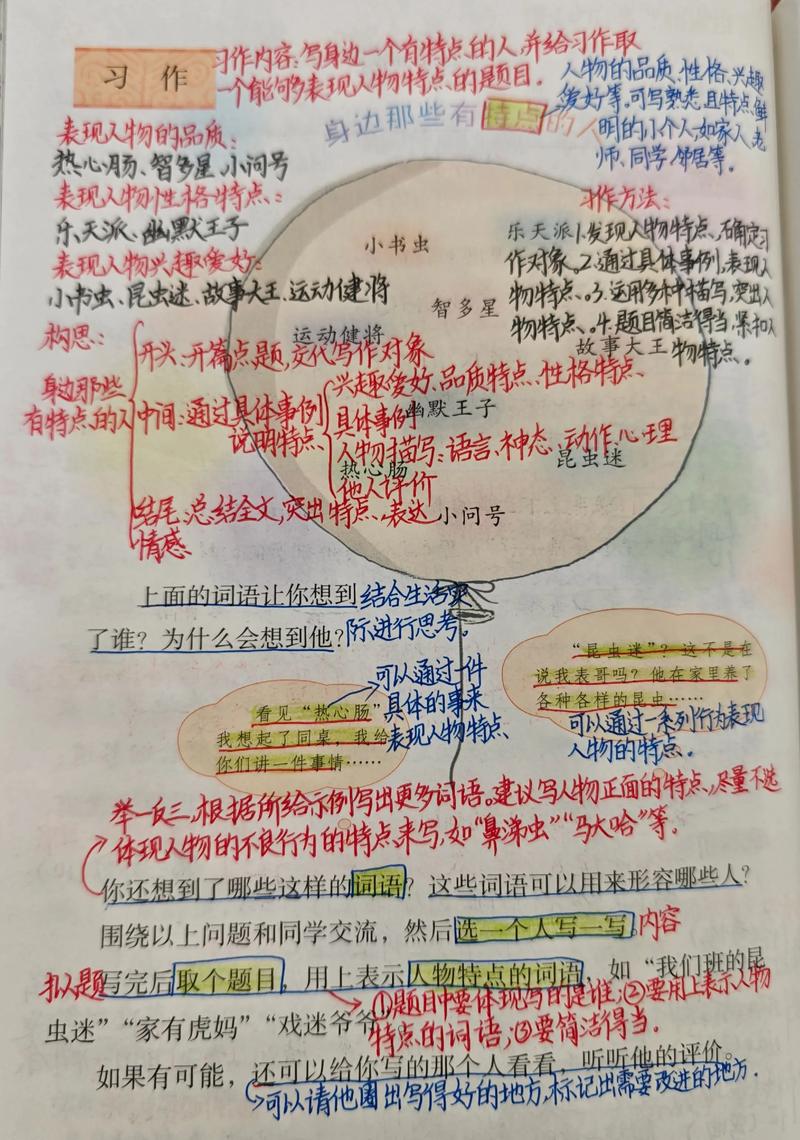 习作
习作内容:写身边一个有特点的人,并给习作取
一个能够多表现人物特点的题目.
人物的品质、性格、兴趣
爱好等。可写熟悉且特点鲜
明的小个人,如家人、老
师、同学、邻居等。
身边那些有特点的人
表现人物的品质:
热心肠、智多星、小问号
表现人物性格特点:
乐天派、幽默王子
表现人物兴趣爱好:
小书虫、昆虫迷、故事大王、运动健将
小书虫
智多星
运动健将
乐天派
故事大王
幽默王子
热心肠
昆虫迷
小问号
习作方法:
1.发现人物特点,确定习
作对象。2.通过具体事例,表现人
物特点。3.运用多种描写,突出人
物特点。4.题目简洁得当,紧扣人
物特点。
构思:
身边那些
有特点的人
开头:开篇点题,交代写作对象
中间:通过具体事例
说明特点
兴趣爱好、品质特点、性格特点、
具体事例
人物描写:语言、神态、动作、心理
他人评价
结尾:总结全文,突出特点、表达
情感
上面的词语让你想到
了谁?为什么会想到他?
结合生活实
际,进行思考。
看见“热心肠”
我想起了同桌,我给
你们讲一件事情……
可以通过一件
具体的事来
表现人物特点
“昆虫迷”?这不是在
说我表哥吗?他在家里养了
各种各样的昆虫……
可以通过一系列行为表现
人物的特点。
举一反三,根据所给示例写出更多词语。建议写人物正面的特点,尽量不选
体现人物的不良行为的特点来写,如“鼻涕虫”“马大哈”等。
你还想到了哪些这样的词语?这些词语可以用来形容哪些人?
围绕以上问题和同学交流,然后选一个人写一写。
内容
拟题
写完后取个题目,用上表示人物特点的词语,如“我们班的昆
虫迷”“家有虎妈”“戏迷爷爷”
①题目中要体现写的是谁;②要用上表示人物
特点的词语;③要简洁得当.
如果有可能,还可以给你写的那个人看看,听听他的评价。
可以请他圈出写得好的地方,标记出需要改进的地方.